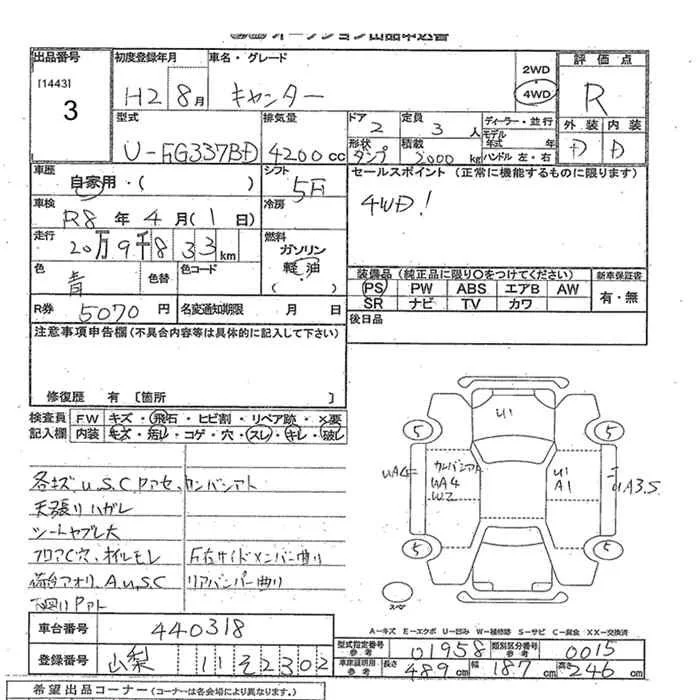 オークション出品申込書
出品番号 初度登録年月 車名・グレード 2WD 4WD 評価点
[1443]
3 H2 8月 キャンター R
型式 排気量 ドア 2 定員 3人 ディーラー・並行 外装 内装
U-FG337BD 4200cc 形状 ダンプ 積載 2000kg モデル年式 年 D D
ハンドル 左・右
車歴 自家用・( ) シフト 5F セールスポイント (正常に機能するものに限ります)
車検 R8年4月(1日) 冷房 4WD!
走行 20万9千833km 燃料 ガソリン 軽油 ( )
色 青 色替 色コード
装備品 (純正品に限り○をつけてください) 新車保証書
(PS) PW ABS エアB AW 有・無
SR ナビ TV カワ
R券 5070円 名変通知期限 月 日 後日品
注意事項申告欄 (不具合内容等は具体的に記入して下さい)
修復歴 有 [箇所 ]
検査員 FW キズ・飛石・ヒビ割・リペア跡・×要
記入欄 内装 キズ・汚レ・コゲ・穴・スレ・キレ・破レ
各キズ、U、S、C、Pアセ、カンバンアト
天張りハガレ
シートヤブレ大
フロアC穴、オイルモレ F左右サイドメンバー曲り
荷台アオリ、A、U、S、C リアバンパー曲り
下回りPアト
U1
5 5
UA4 カンバンアト UA4 W2 U1 A1 UA3.S
5 5
スペア
A-キズ E-エクボ U-凹み W-補修跡 S-サビ C-腐食 XX-交換済
車台番号 440318
型式指定番号 参考 01958 類別区分番号 参考 0015
登録番号 山梨 11 そ 2302
車庫証明用 参考 長さ 489cm 幅 187cm 高さ 246cm
希望出品コーナー (コーナーは各会場により異なります。)